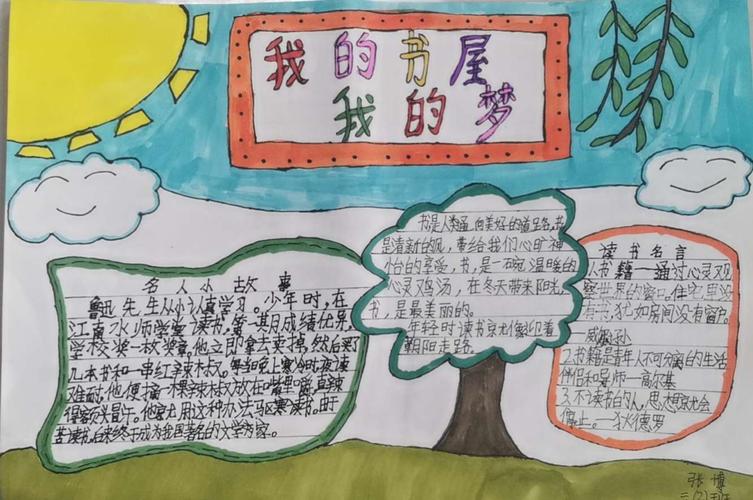 我的书屋
我的梦
名人小故事
鲁迅先生从小认真学习。少年时,在
江南水师学堂读书,第一期成绩优异,
学校奖一枚奖章。他立即拿去卖掉,然后买了
几本书和一串红辣椒。每当晚上寒冷时夜读
难耐,他便摘一颗辣椒放在嘴里嚼,直辣
得额头冒汗。他就用这种办法驱寒读书。时
苦读书,后来终于成为我国著名的文学家。
书是人类通向美好的道路。书
是清新的风,带给我们心旷神
怡的享受,书,是一碗温暖的
心灵鸡汤,在冬天带来阳光,
书,是最美丽的。
年轻时读书就像迎着
朝阳走路。
读书名言
1.书籍——通过心灵观
察世界的窗口。住宅里没
有书,犹如房间没有窗户。
—威尔孙
2.书籍是青年人不可分离的生活
伴侣和导师—高尔基
3.不读书的人,思想就会
停止。—狄德罗
张博
二(2)班